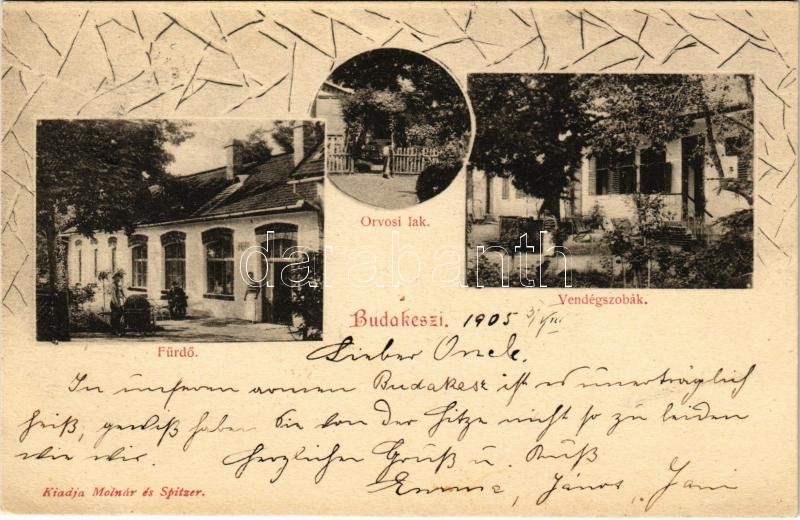 Orvosi lak.
Vendégszobák.
Fürdő.
Budakeszi. 1905 3/VIII
Lieber Onck.
In unseren armen Budakesz ist es unerträglich
heiß, gewiß haben Sie von der Hitze nicht so zu leiden
wie wir. Herzlichen Gruß u. Kuß
Emma, János, Jani
Kiadja Molnár és Spitzer.
darabanth